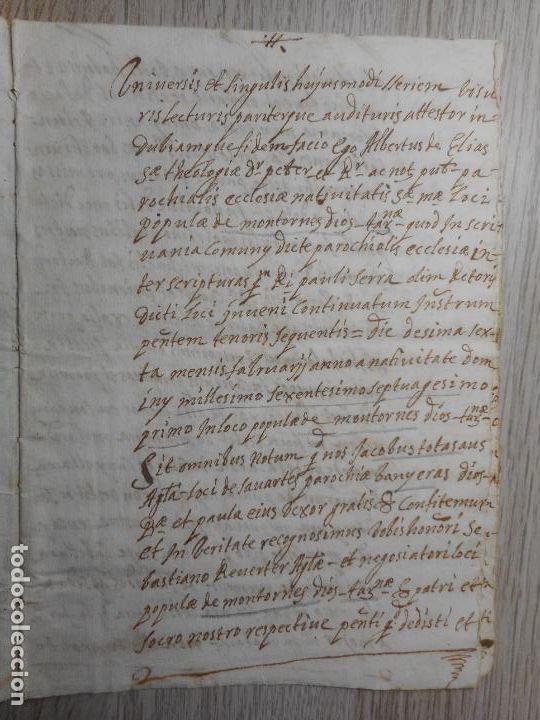 Universis et singulis hujusmodi seriem visu
ris lecturis pariterque audituris attestor in
dubiamque fidem facio Ego Albertus de Elias
Sæ theologiæ Dr. pbter et Rr ac not. pubs pa-
rochialis ecclesiæ nativitatis Sæ mæ Loci
populæ de montornes dios-tarnæ quod In scri
vania Comuny dicte parochialis ecclesiæ in
ter scripturas Rı pauli serra olim Rctory
Dicti Loci inveni Continuatum Instrum
pñtem tenoris sequentis = die desima sex
ta mensis fabruarij anno a nativitate dom
iny millesimo sexentesimo septuagesimo
primo In loco populæ de montornes dios-tarnæ
Sit omnibus Notum q nos Jacobus totasaus
Agla. loci de savartes parochiæ banyeras dios-
Bæ et paula eius vxor gratis & Confitemur
et In veritate recognosimus vobis honori Se
bastiano Reverter Aglæ - et negosiatori loci
populæ de montornes dios-tarnæ patri et
socro nostro respective pñti q dedisti et
todocoleccion.net